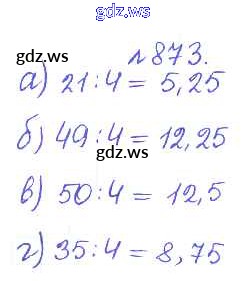 gdz.ws
№873.
gdz.ws
а) 21:4 = 5,25
б) 49:4 = 12,25
gdz.ws
в) 50:4 = 12,5
г) 35:4 = 8,75
gdz.ws